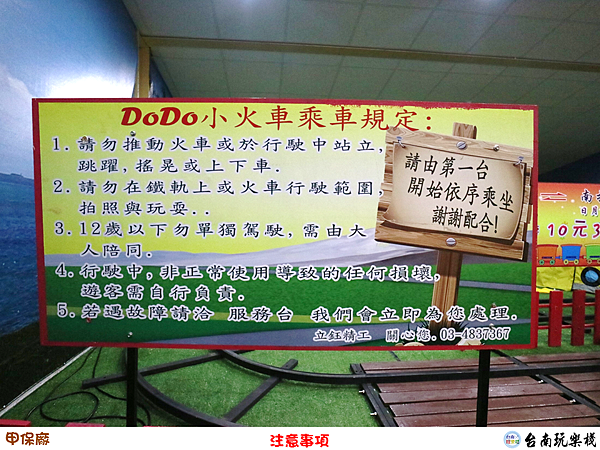 DoDo小火車乘車規定:
1.請勿推動火車或於行駛中站立,
跳躍,搖晃或上下車.
2.請勿在鐵軌上或火車行駛範圍,
拍照與玩耍..
3.12歲以下勿單獨駕駛,需由大
人陪同.
4.行駛中,非正常使用導致的任何損壞,
遊客需自行負責.
5.若遇故障請洽 服務台 我們會立即為您處理.
立鈺精工 關心您.03-4837367
請由第一台
開始依序乘坐
謝謝配合!
10元3
甲保廠
注意事項
台南玩樂棧